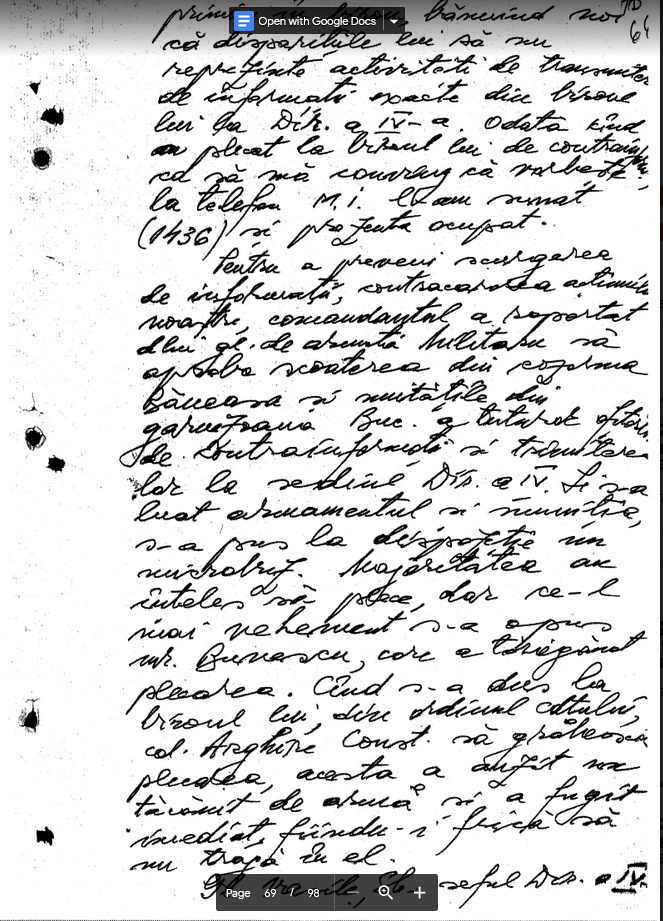 Open with Google Docs
64
că disparițiile lui să nu
reprezinte activități de transmitere
de informații exacte din biroul
lui la Dir. a IV-a. Odată cînd
am plecat la biroul lui de contrainf.
ca să mă conving că vorbește
la telefon M.I. l-am sunat
(1436) și prezenta ocupat.
Pentru a preveni scurgerea
de informații, contracararea acțiunilor
noastre, comandantul a raportat
dlui gl. de armată Militaru să
aprobe scoaterea din cazarma
Băneasa și unitățile din
garnizoana Buc. a tuturor ofițerilor
de contrainformații și trimiterea
lor la sediul Dir. a IV. Li s-a
luat armamentul și muniția,
s-a pus la dispoziție un
microbuz. Majoritatea au
înteles să plece, dar ce-l
mai vehement s-a opus
mr. Bunoscu, care a tărăgănat
plecarea. Cînd s-a dus la
biroul lui, din ordinul cdtului,
col. Arghire Const. să grăbească
plecarea, acesta a auzit un
țăcănit de armă și a fugit
imediat, fiindu-i frică să
nu tragă în el.
Gl. Vasile, șeful Dir. a IV.
Page 69 / 98